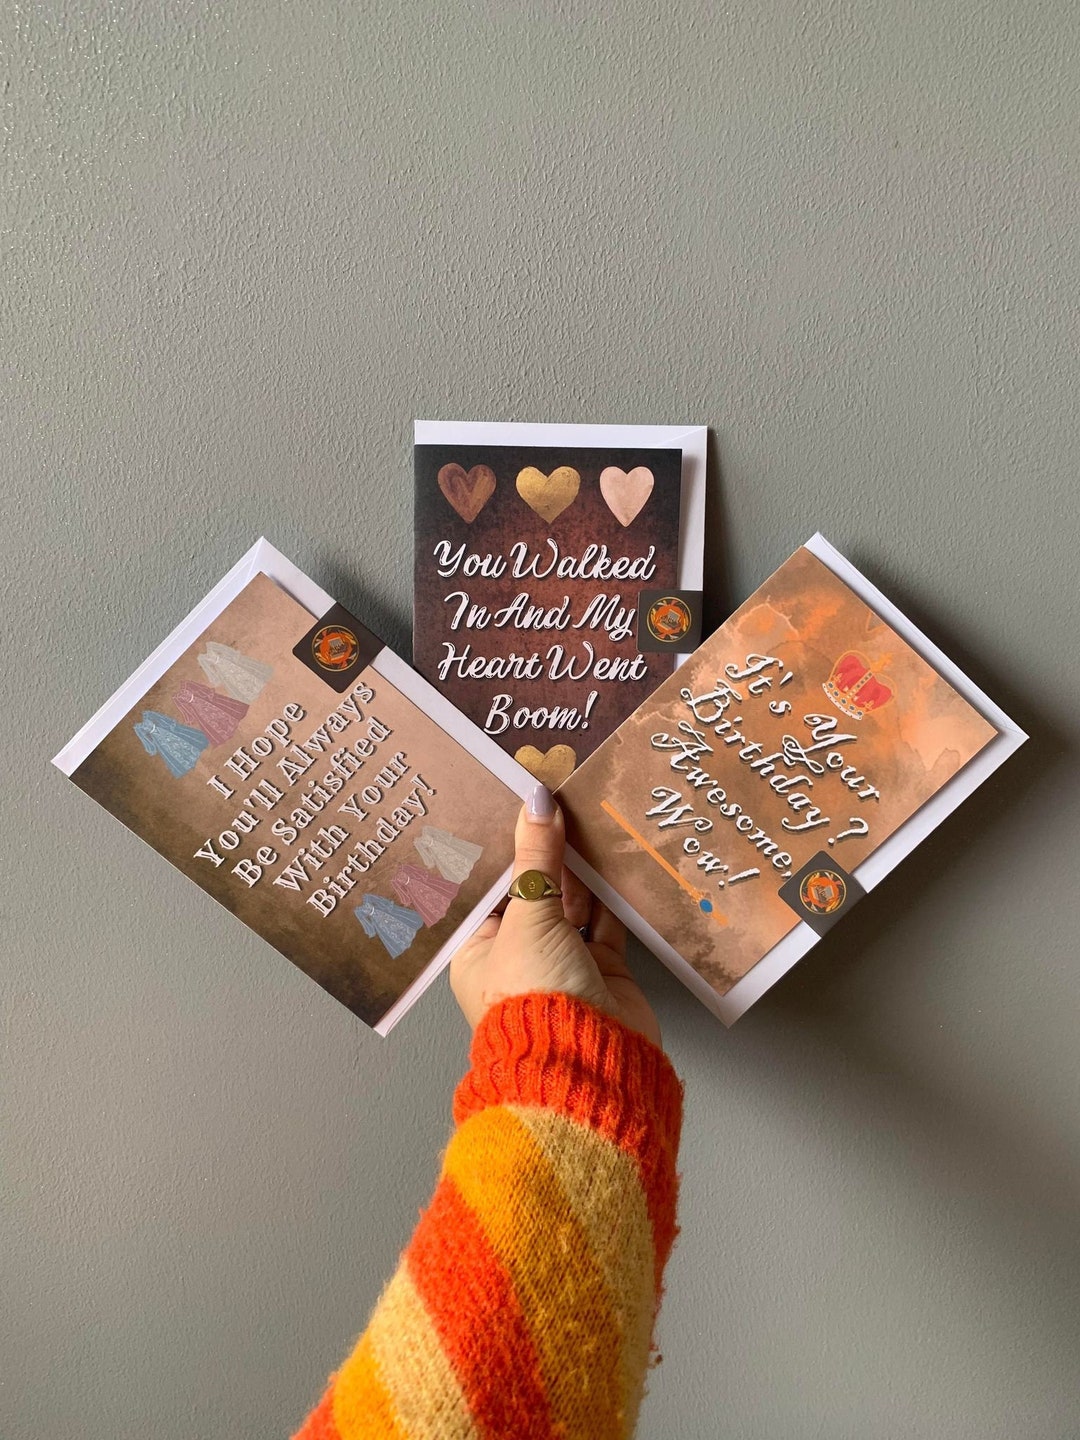 You Walked
In And My
Heart Went
Boom!
I Hope
You'll Always
Be Satisfied
With Your
Birthday!
It's Your
Birthday?
Awesome,
Wow!